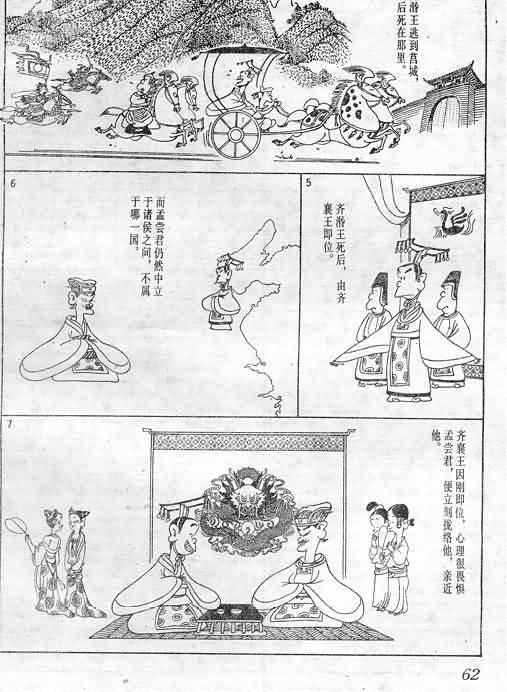 潛王逃到莒城，
后死在那里。
5
齐潛王死后，由齐
襄王即位。
6
而孟尝君仍然中立
于诸侯之间，不属
于哪一国。
7
齐襄王因刚即位，心理很畏惧
孟尝君，便立刻拢络他，亲近
他。
62